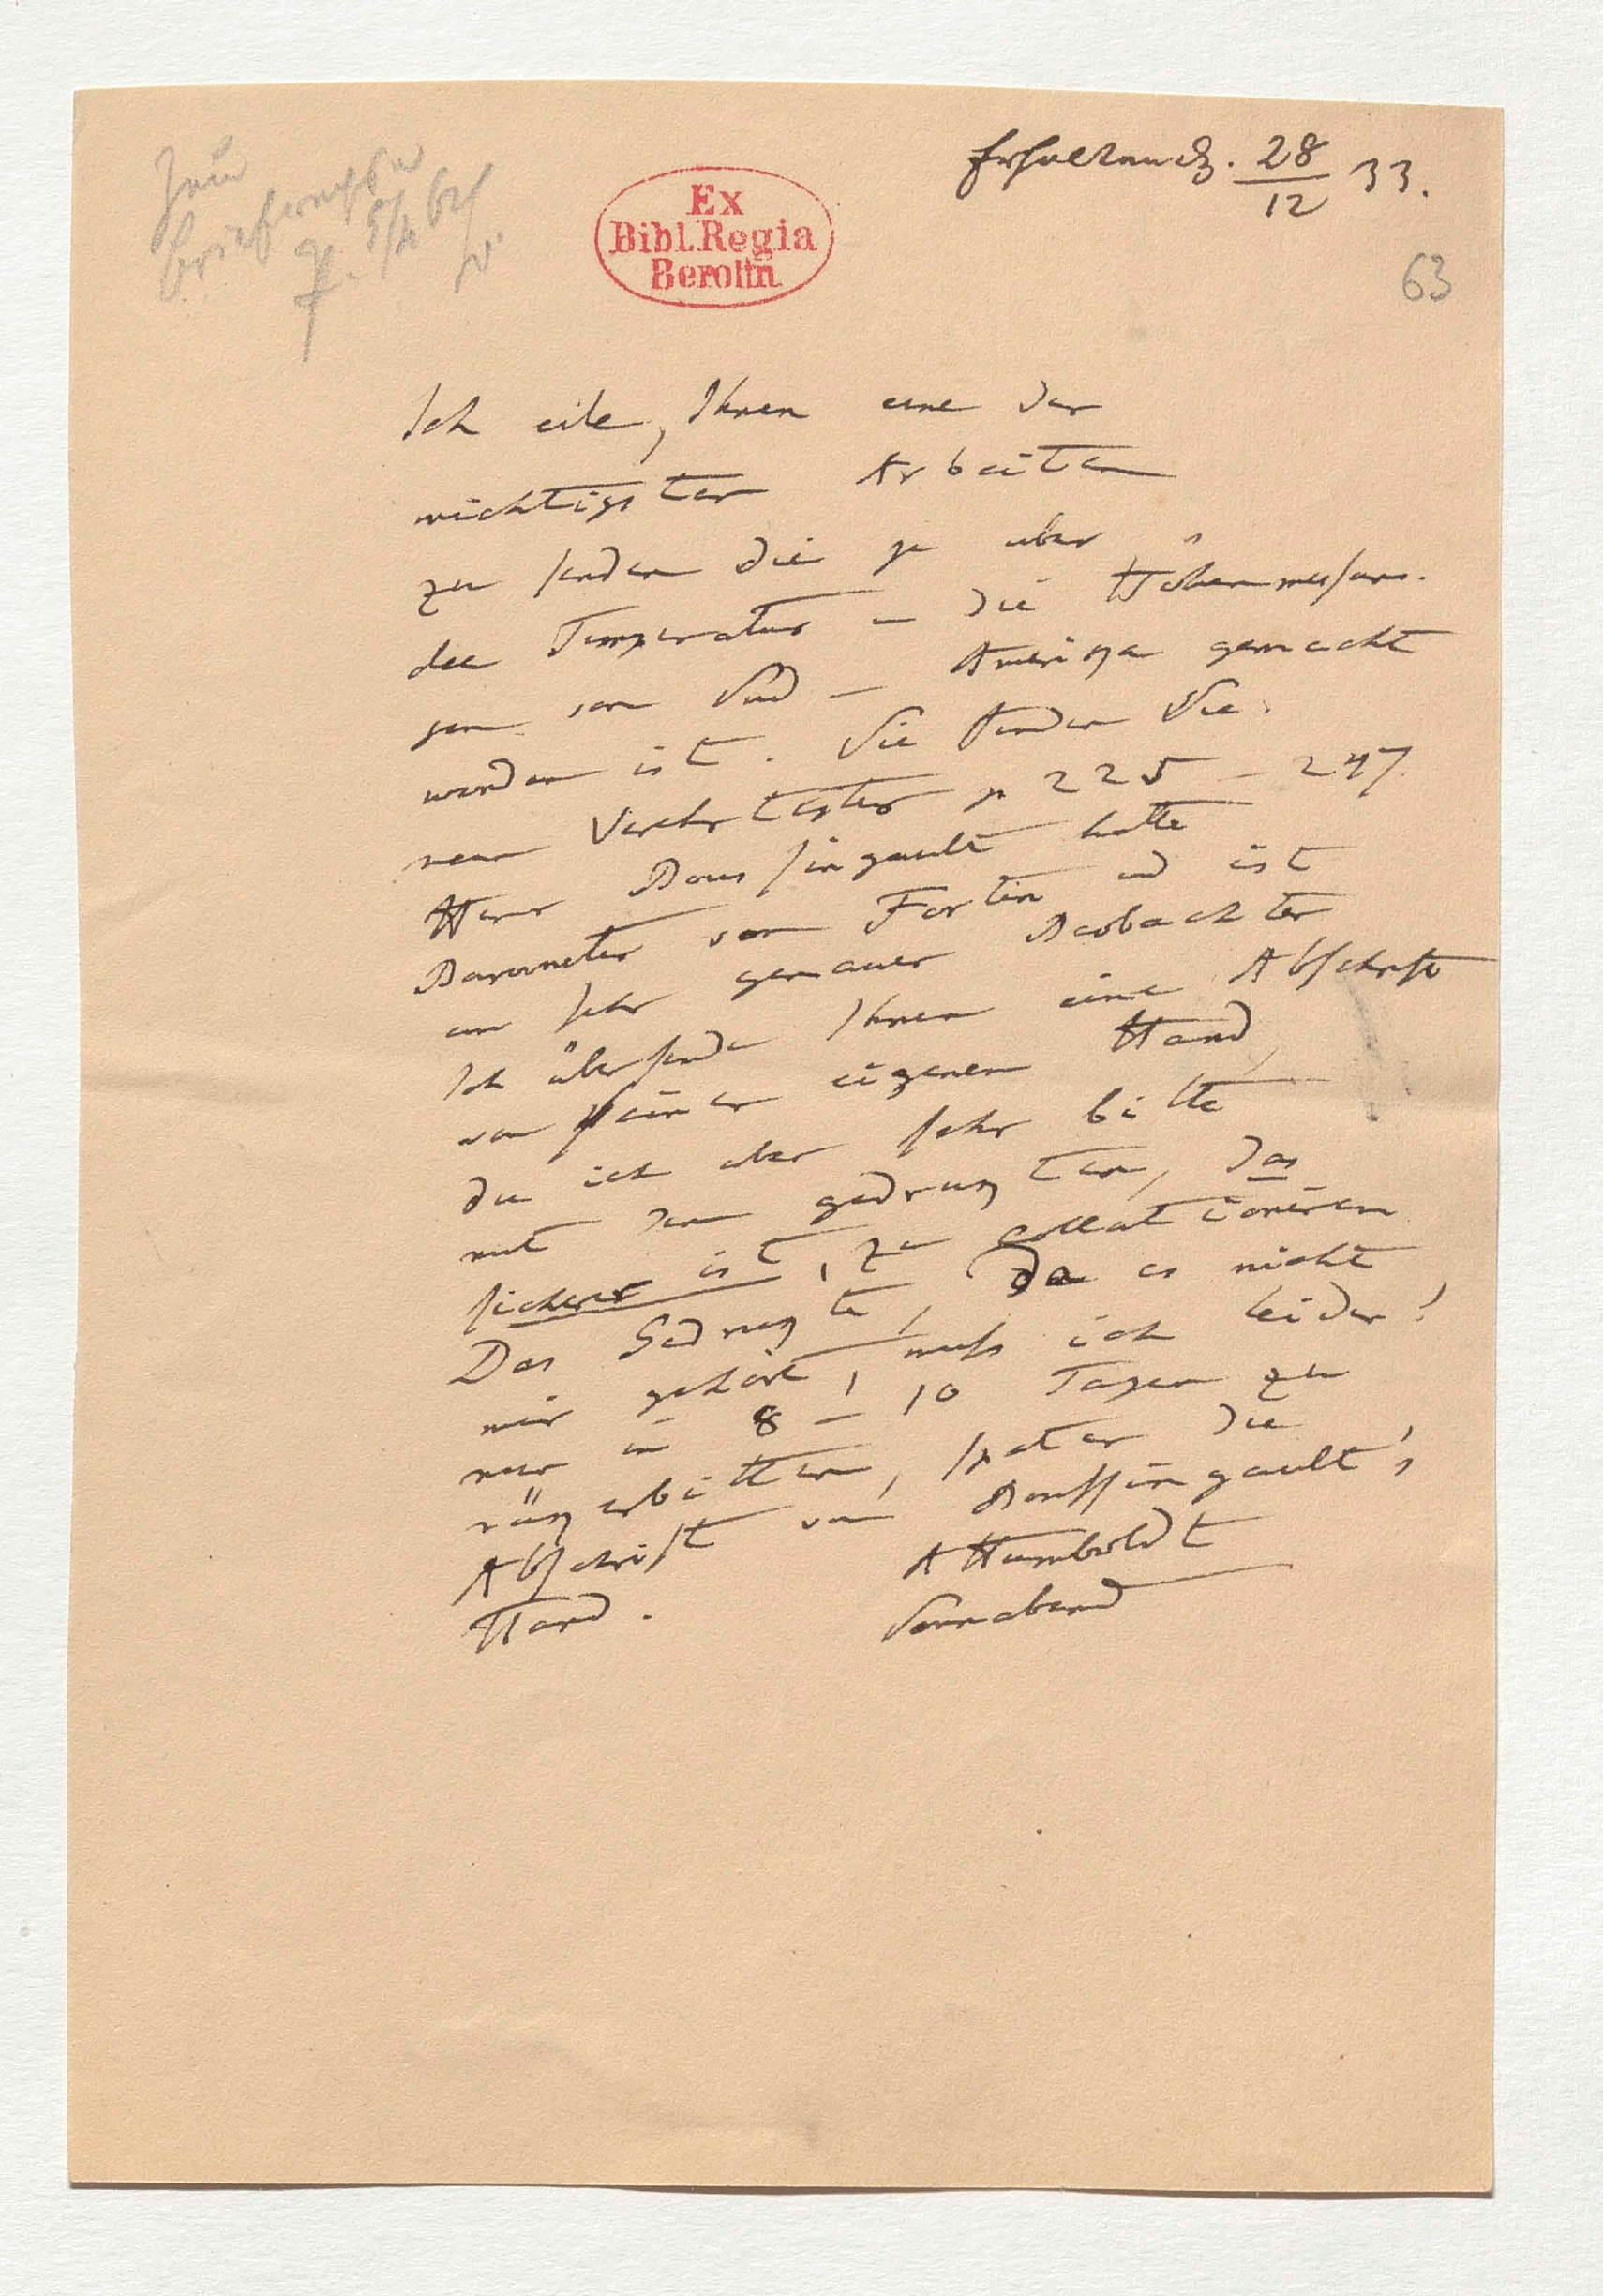 Erhalten d. 28/12 33.
Ex
Bibl. Regia
Berolin
63
Ich eile, Ihnen eine der
wichtigsten Arbeiten
zu senden die je über
die Temperatur u die Höhenmessun-
gen von Süd-Amerika gemacht
worden ist. Sie finden Sie
mein Verehrtester p 225-247
Herr Boussingault hatte
Barometer von Fortin und ist
ein sehr genauer Beobachter
Ich übersende Ihnen eine Abschrift
von seiner eigenen Hand,
die ich aber sehr bitte
mit dem gedruckten, das
sicherer ist, zu collationiren
Das Gedruckte, da es nicht
mir gehört, muß ich leider!
mir in 8-10 Tagen zu
rük erbitten, später die
Abschrift von Boussingault's
Hand.
AHumboldt
Sonnabend